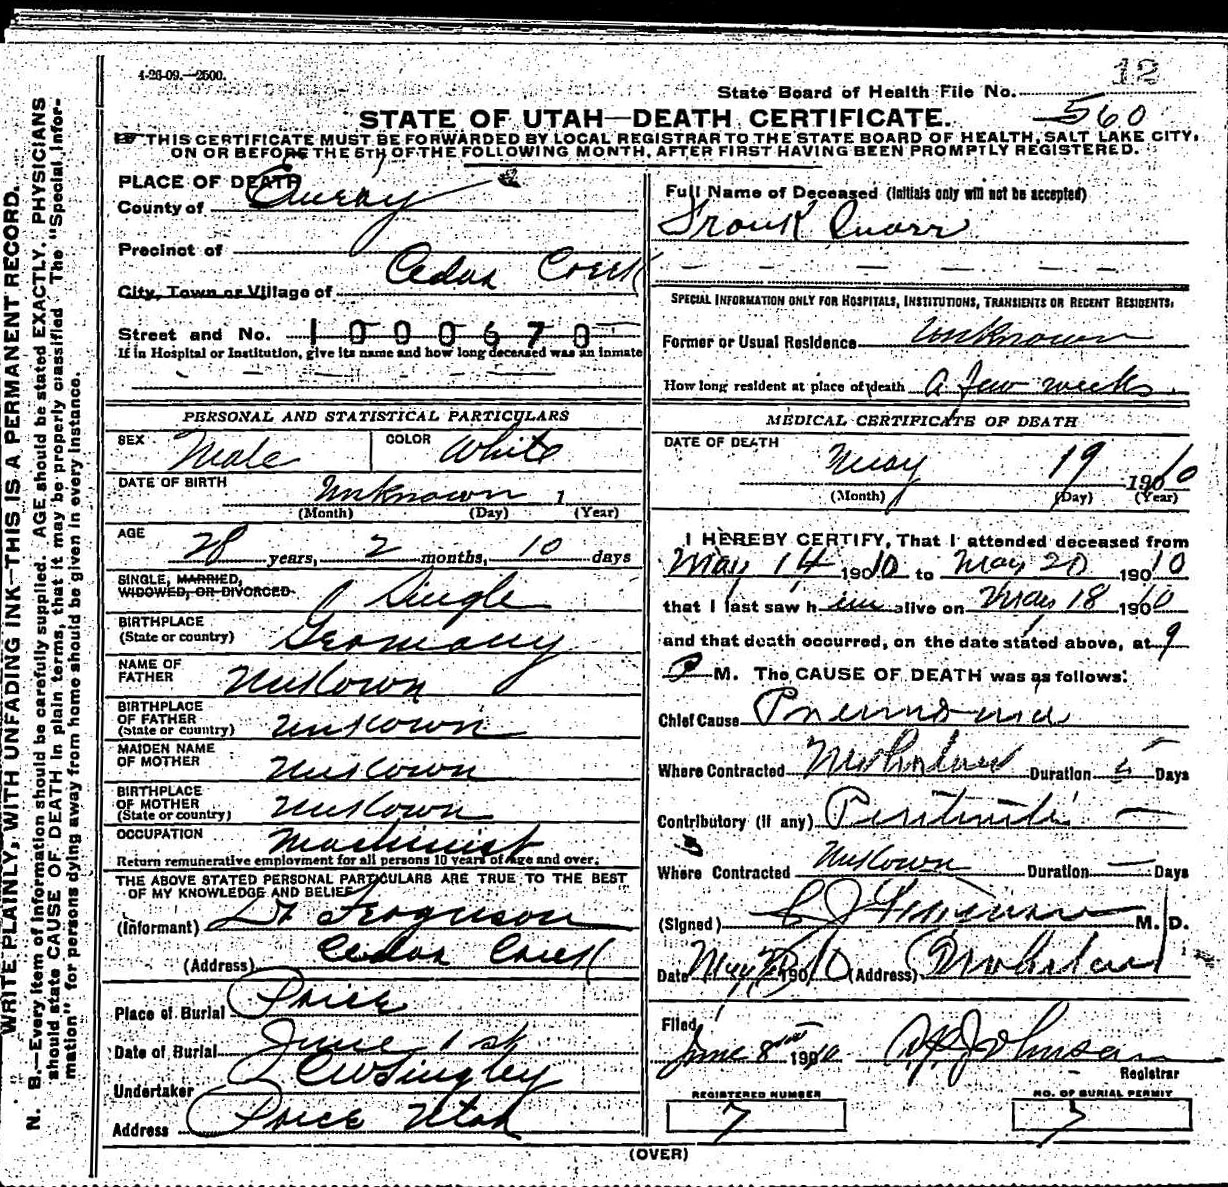 4-26-09.—2500.
12
State Board of Health File No.
560
STATE OF UTAH—DEATH CERTIFICATE.
THIS CERTIFICATE MUST BE FORWARDED BY LOCAL REGISTRAR TO THE STATE BOARD OF HEALTH, SALT LAKE CITY,
ON OR BEFORE THE 5TH OF THE FOLLOWING MONTH, AFTER FIRST HAVING BEEN PROMPTLY REGISTERED.
PLACE OF DEATH
County of Emery
Precinct of
City, Town or Village of Cedar Creek
Street and No. 1000670
If in Hospital or Institution, give its name and how long deceased was an inmate
PERSONAL AND STATISTICAL PARTICULARS
SEX Male COLOR White
DATE OF BIRTH Unknown 1
(Month) (Day) (Year)
AGE 28 years, 2 months, 10 days
SINGLE, MARRIED,
WIDOWED, OR DIVORCED Single
BIRTHPLACE
(State or country) Germany
NAME OF
FATHER Unkown
BIRTHPLACE
OF FATHER
(State or country) Unkown
MAIDEN NAME
OF MOTHER Unkown
BIRTHPLACE
OF MOTHER
(State or country) Unkown
OCCUPATION Machinist
Return remunerative employment for all persons 10 years of age and over.
THE ABOVE STATED PERSONAL PARTICULARS ARE TRUE TO THE BEST
OF MY KNOWLEDGE AND BELIEF
(Informant) Ferguson
(Address) Cedar Creek
Place of Burial Price
Date of Burial June 1st
Undertaker CW Singley
Address Price Utah
Full Name of Deceased (Initials only will not be accepted)
Frank
SPECIAL INFORMATION ONLY FOR HOSPITALS, INSTITUTIONS, TRANSIENTS OR RECENT RESIDENTS:
Former or Usual Residence Unknown
How long resident at place of death A few weeks.
MEDICAL CERTIFICATE OF DEATH
DATE OF DEATH
May 19 1910
(Month) (Day) (Year)
I HEREBY CERTIFY, That I attended deceased from
May 14 190 10 to May 20 190 10
that I last saw h im alive on May 18 1910
and that death occurred, on the date stated above, at 9
P M. The CAUSE OF DEATH was as follows:
Chief Cause Pneumonia
Where Contracted Mohrland Duration 5 Days
Contributory (if any) Peritinitis
Where Contracted Unkown Duration — Days
(Signed) M. D.
Date May 190 10 (Address) Mohrland
Filed
June 8 1910 Johnson
Registrar
REGISTERED NUMBER
7
NO. OF BURIAL PERMIT
(OVER)
WRITE PLAINLY, WITH UNFADING INK—THIS IS A PERMANENT RECORD.
N. B.—Every item of information should be carefully supplied. AGE should be stated EXACTLY. PHYSICIANS
should state CAUSE OF DEATH in plain terms, that it may be properly classified. The "Special Infor-
mation" for persons dying away from home should be given in every instance.